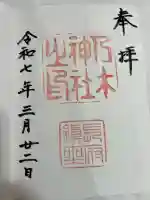 奉拝
乃木
神社
之印
令和七年三月廿二日